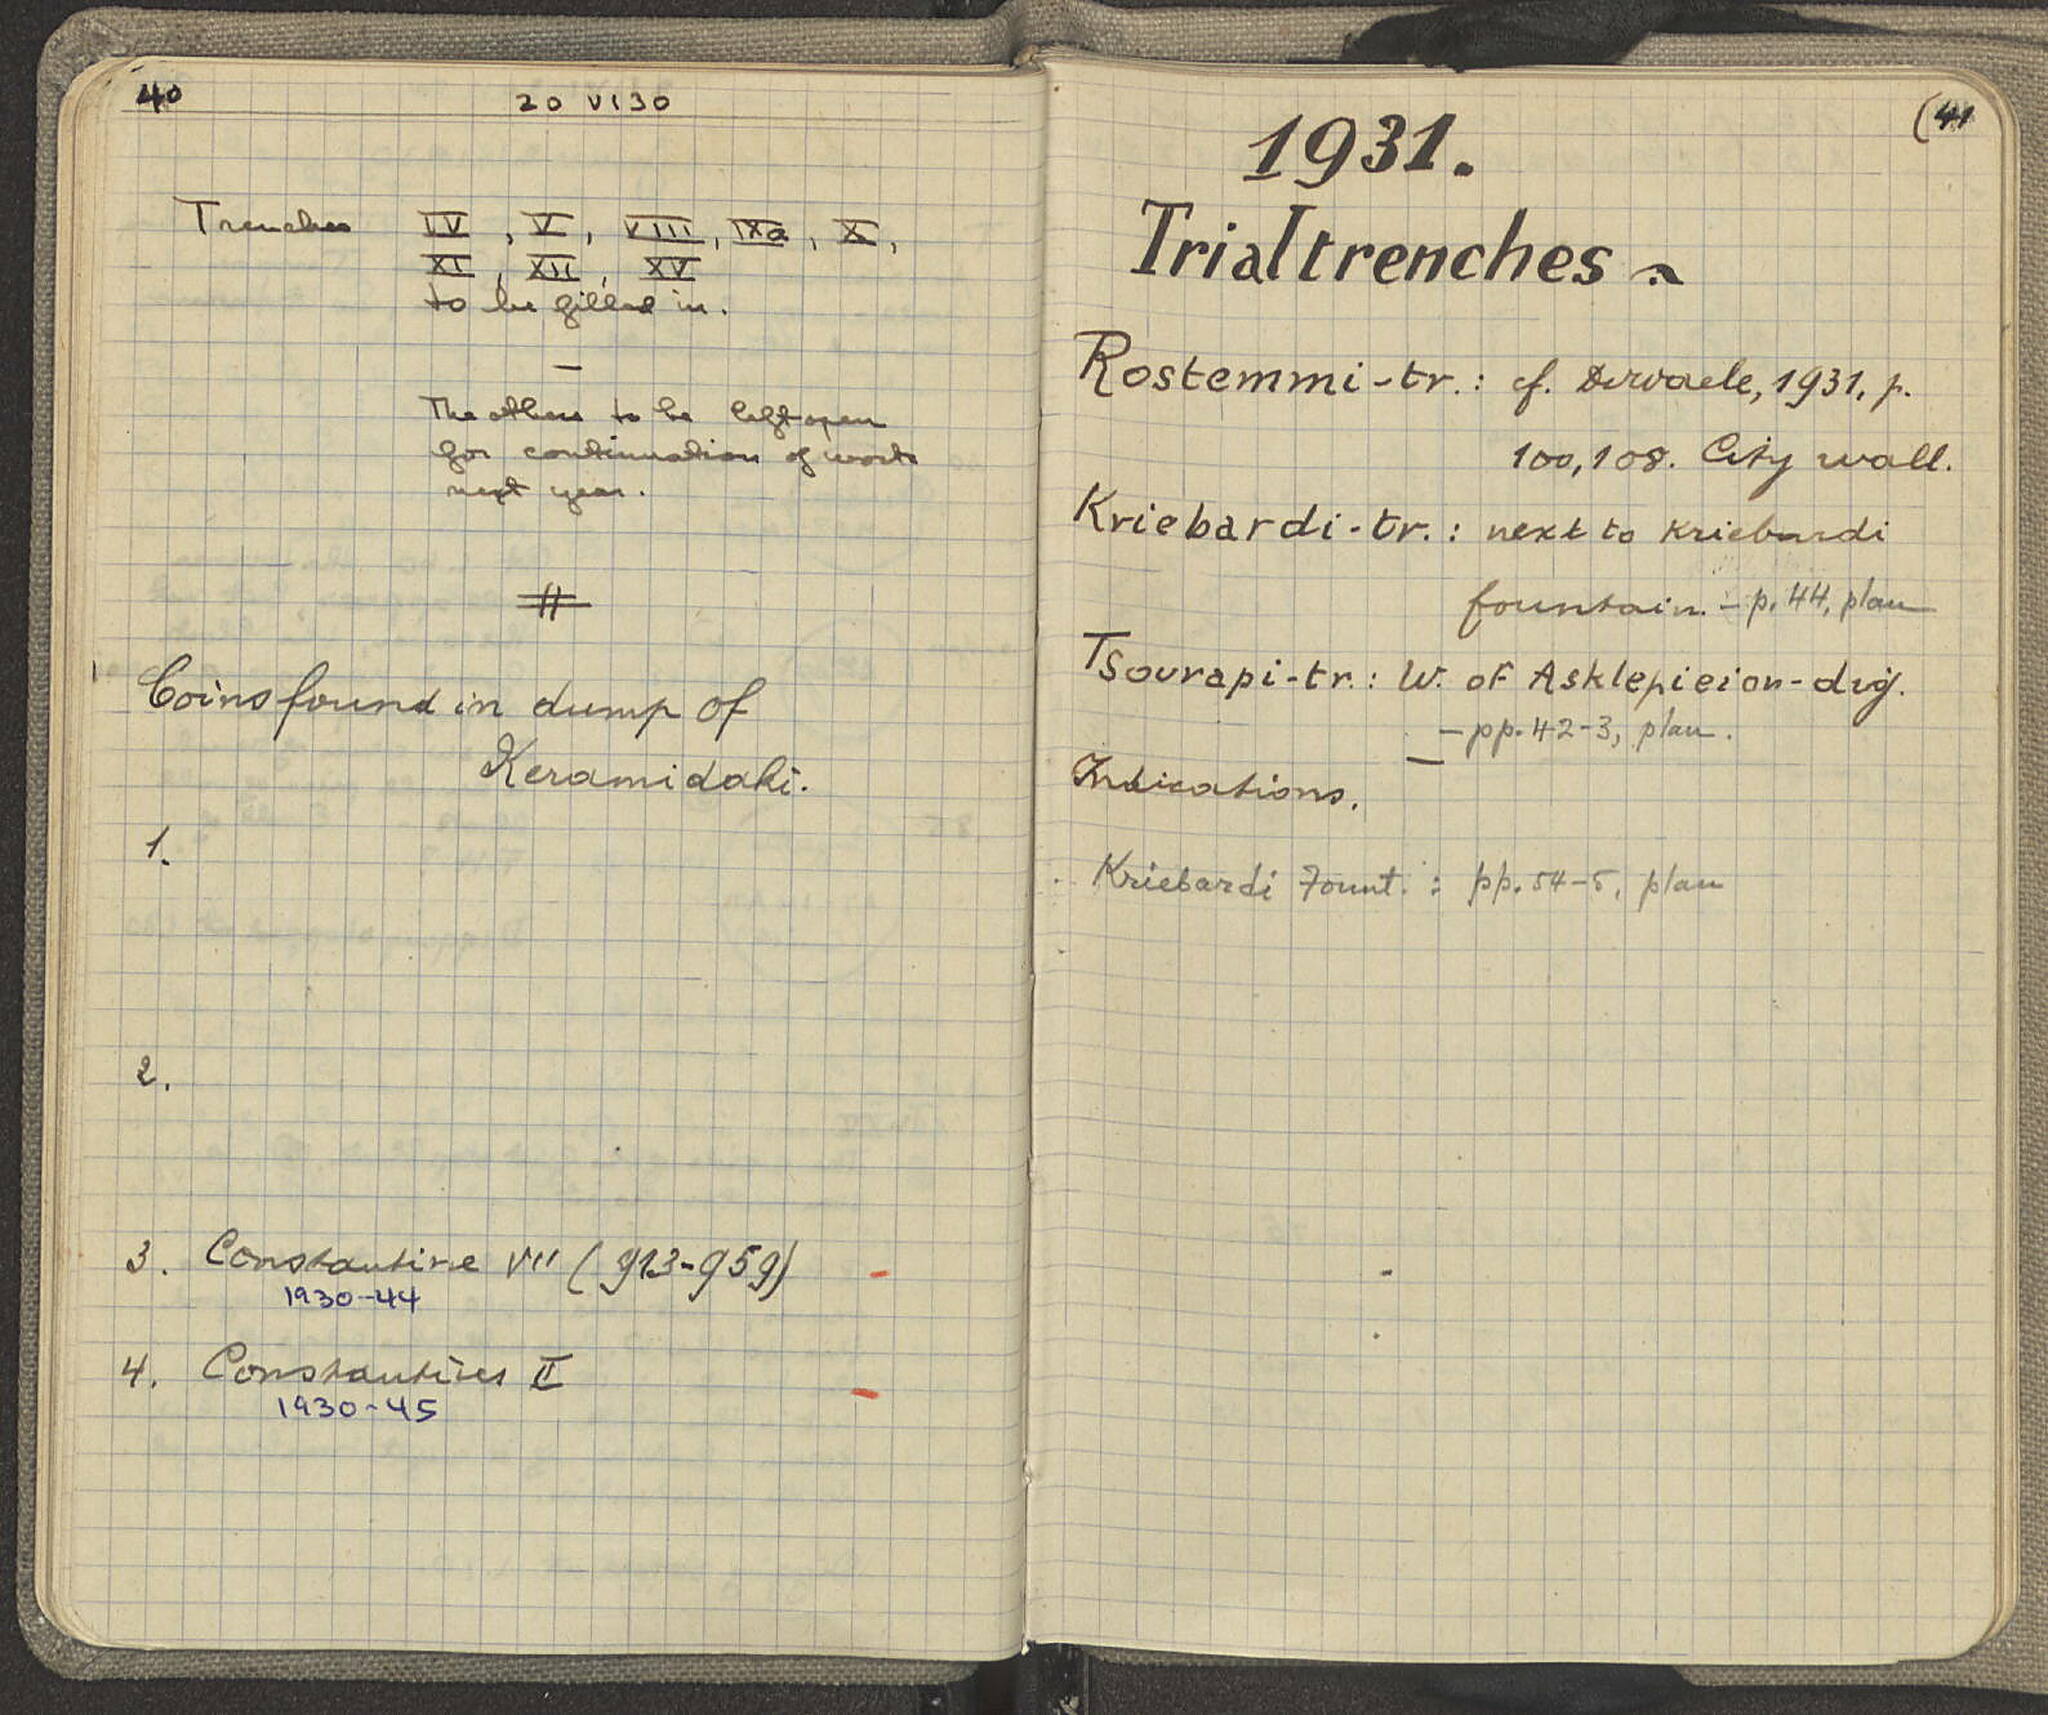 40
20 VI 30
Trenches IV, V, VIII, IXa, X,
XI, XII, XV
to be filled in.
—
The others to be left open
for continuation of work
next year.
Coins found in dump of
Keramidaki.
1.
2.
3. Constantine VII (913-959) -
1930-44
4. Constantius II -
1930-45
(41
1931.
Trialtrenches
Rostemmi-tr.: cf. Dewaele, 1931, p.
100, 108. City wall.
Kriebardi-tr.: next to Kriebardi
fountain. - p. 44, plan
Tsourapi-tr.: W. of Asklepieion-dig.
- pp. 42-3, plan.
—
Indications.
Kriebardi Fount.: pp. 54-5, plan